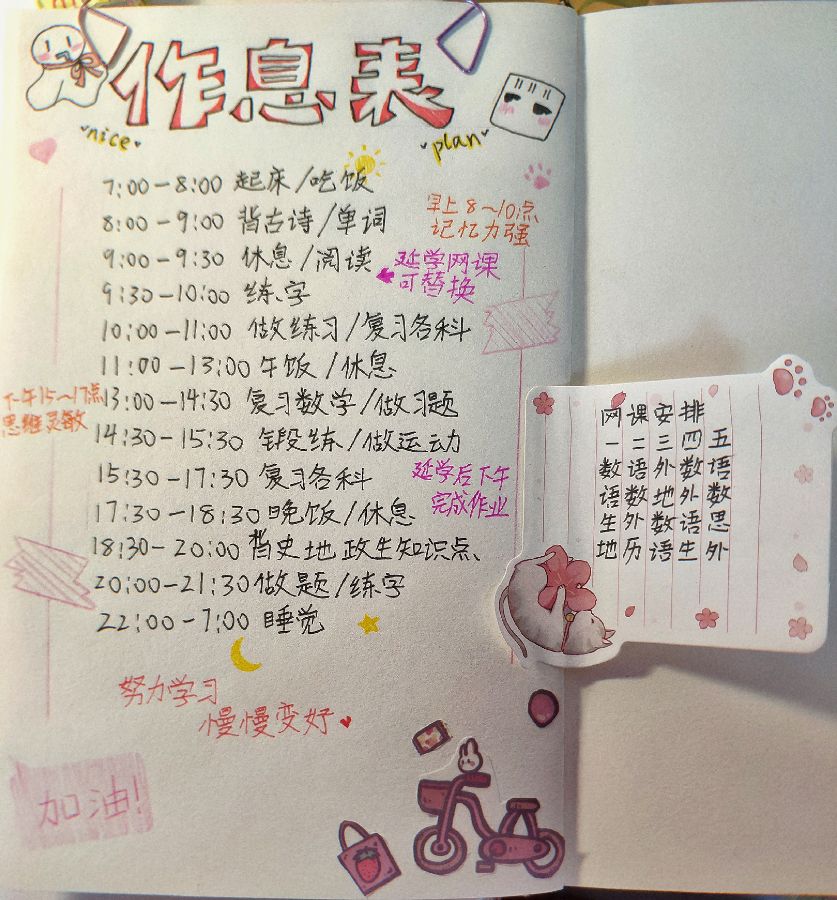 作息表
nice
plan
7:00-8:00 起床/吃饭
8:00-9:00 背古诗/单词
早上8~10点
记忆力强
9:00-9:30 休息/阅读
延学网课
可替换
9:30-10:00 练字
10:00-11:00 做练习/复习各科
11:00-13:00 午饭/休息
下午15~17点
思维灵敏
13:00-14:30 复习数学/做习题
14:30-15:30 锻练/做运动
15:30-17:30 复习各科
延学后下午
完成作业
17:30-18:30 晚饭/休息
18:30-20:00 背史地政生知识点、
20:00-21:30 做题/练字
22:00-7:00 睡觉
努力学习
慢慢变好
加油!
网课安排
一二三四五
数语外数语
语数地外数
生外数语思
地历语生外